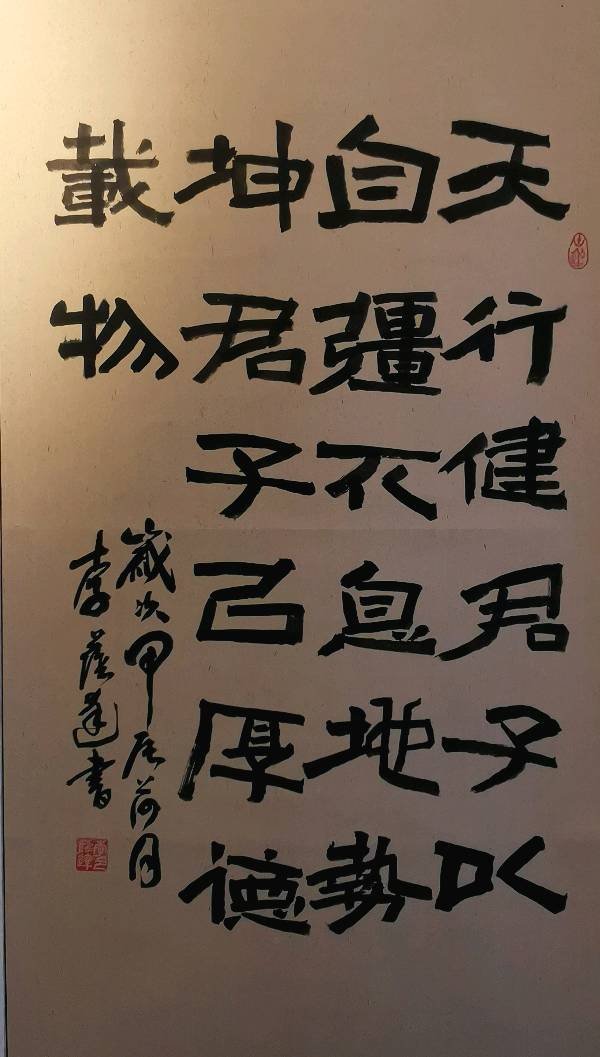 天行健君子以
自彊不息地勢
坤君子以厚德
載物
歲次甲辰荷月
李 書